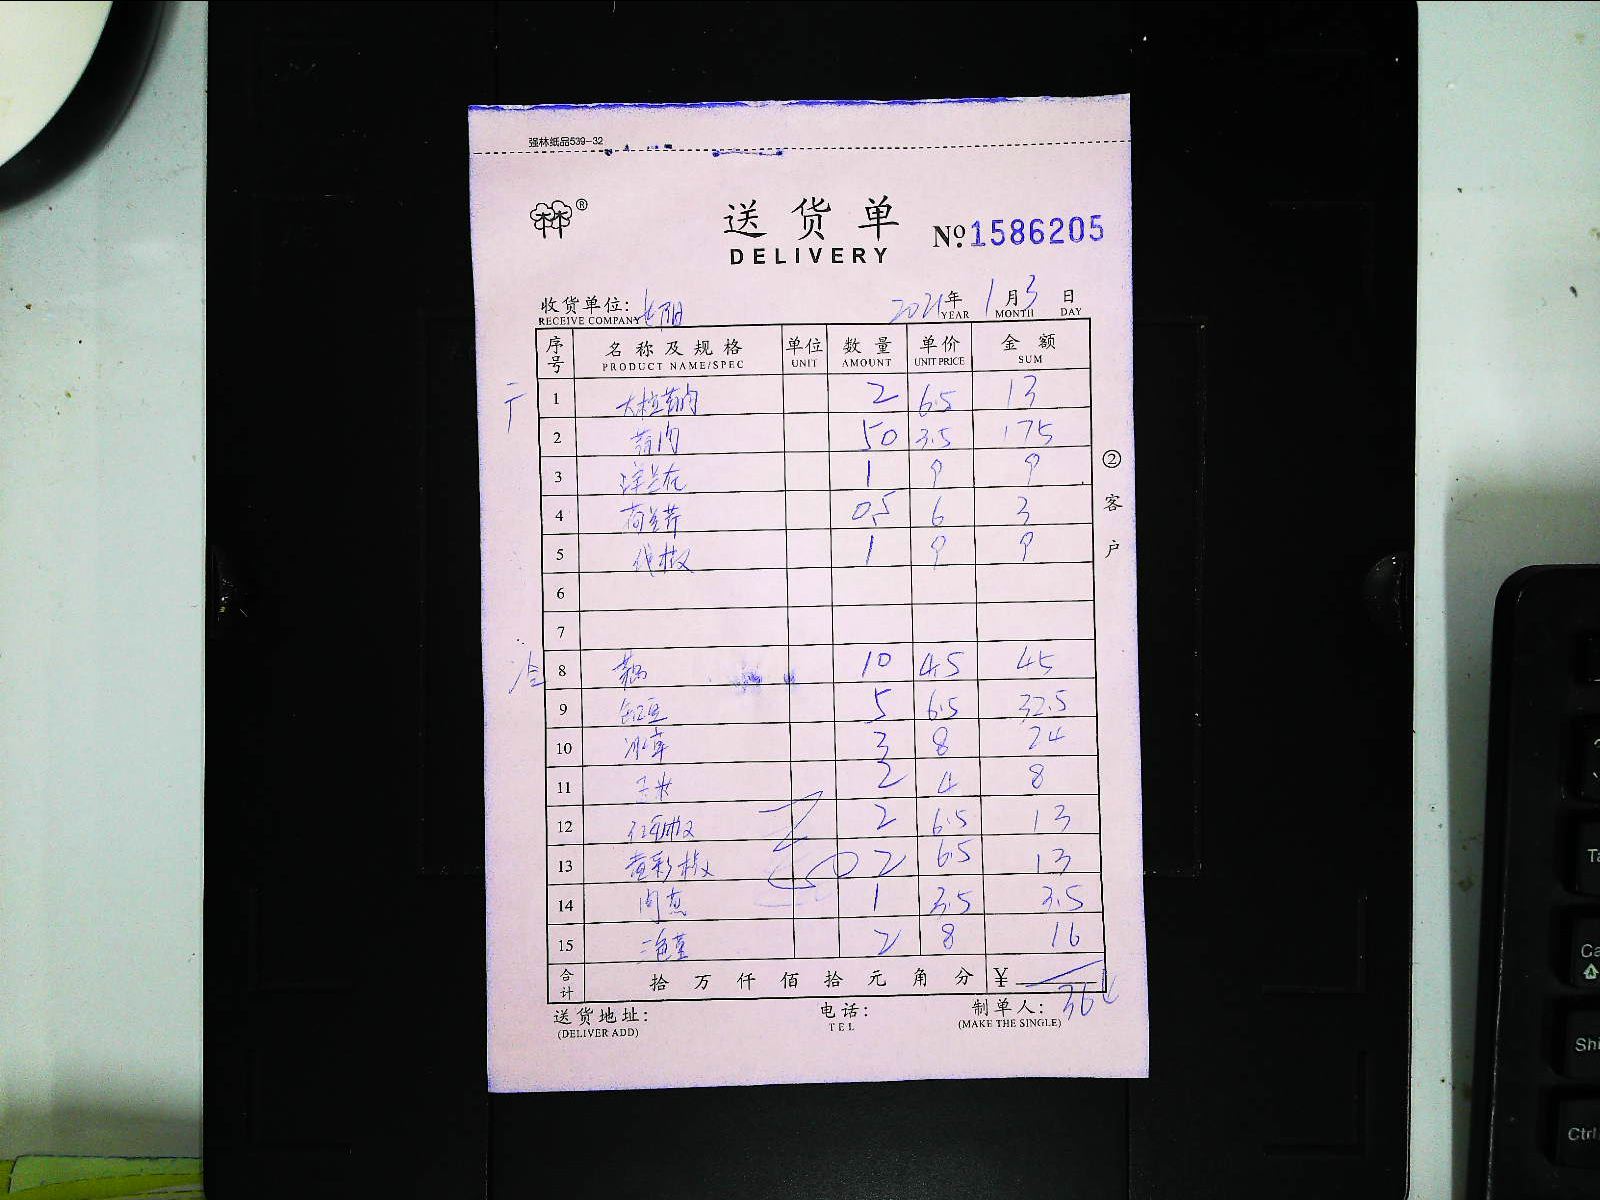 强林纸品539-32
送货单
DELIVERY
№ 1586205
收货单位:
RECEIVE COMPANY
2021年 1月3日
YEAR MONTH DAY
序号 名称及规格 单位 数量 单价 金额
PRODUCT NAME/SPEC UNIT AMOUNT UNIT PRICE SUM
1 大粒 2 6.5 13
2 50 3.5 175
3 1 9 9
4 荷兰芹 0.5 6 3
5 1 9 9
6
7
8 10 4.5 45
9 5 6.5 32.5
10 冰草 3 8 24
11 玉米 2 4 8
12 2 6.5 13
13 黄彩椒 2 6.5 13
14 1 3.5 3.5
15 三色堇 2 8 16
合计 拾万仟佰拾元角分 ¥
364
送货地址: 电话: 制单人:
(DELIVER ADD) TEL (MAKE THE SINGLE)
②客户
Ctrl